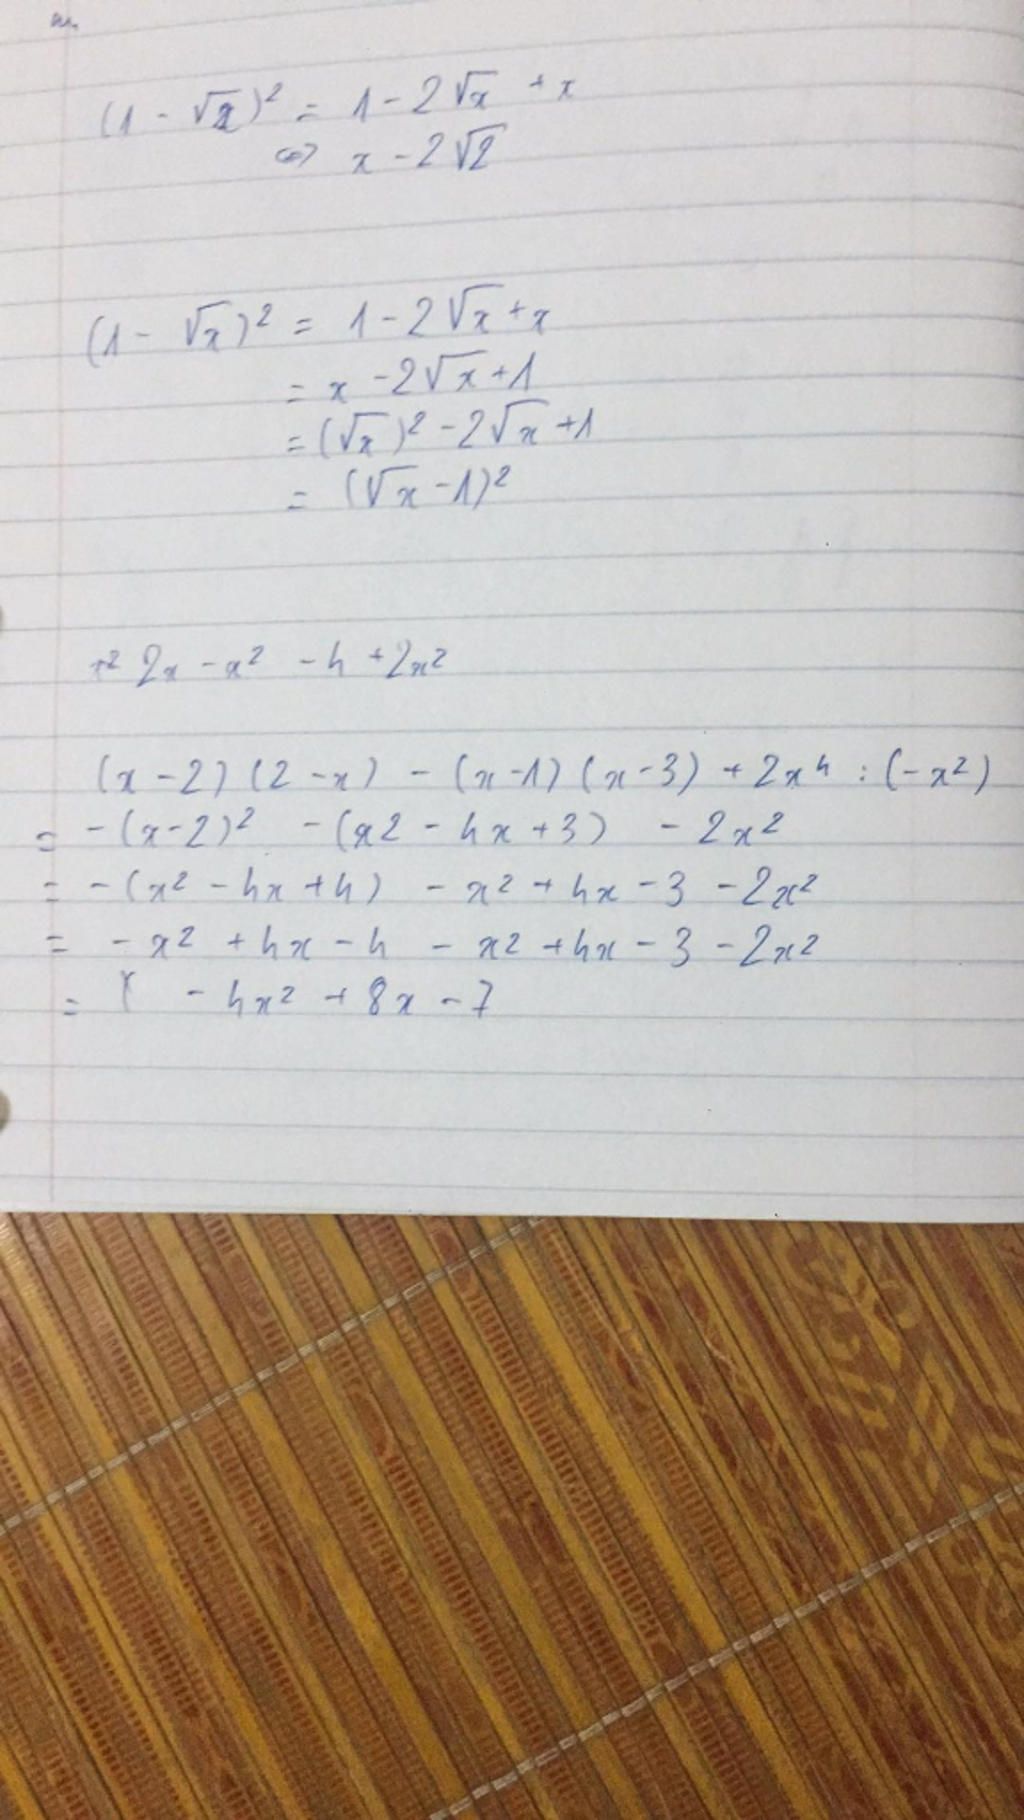 (1 - √x)² = 1 - 2√x + x
<=> x - 2√2
(1 - √x)² = 1 - 2√x + x
= x - 2√x + 1
= (√x)² - 2√x + 1
= (√x - 1)²
2x - x² - 4 + 2x²
(x - 2)(2 - x) - (x - 1)(x - 3) + 2x⁴ : (-x²)
= -(x - 2)² - (x2 - 4x + 3) - 2x²
= -(x² - 4x + 4) - x² + 4x - 3 - 2x²
= - x² + 4x - 4 - x² + 4x - 3 - 2x²
= - 4x² + 8x - 7